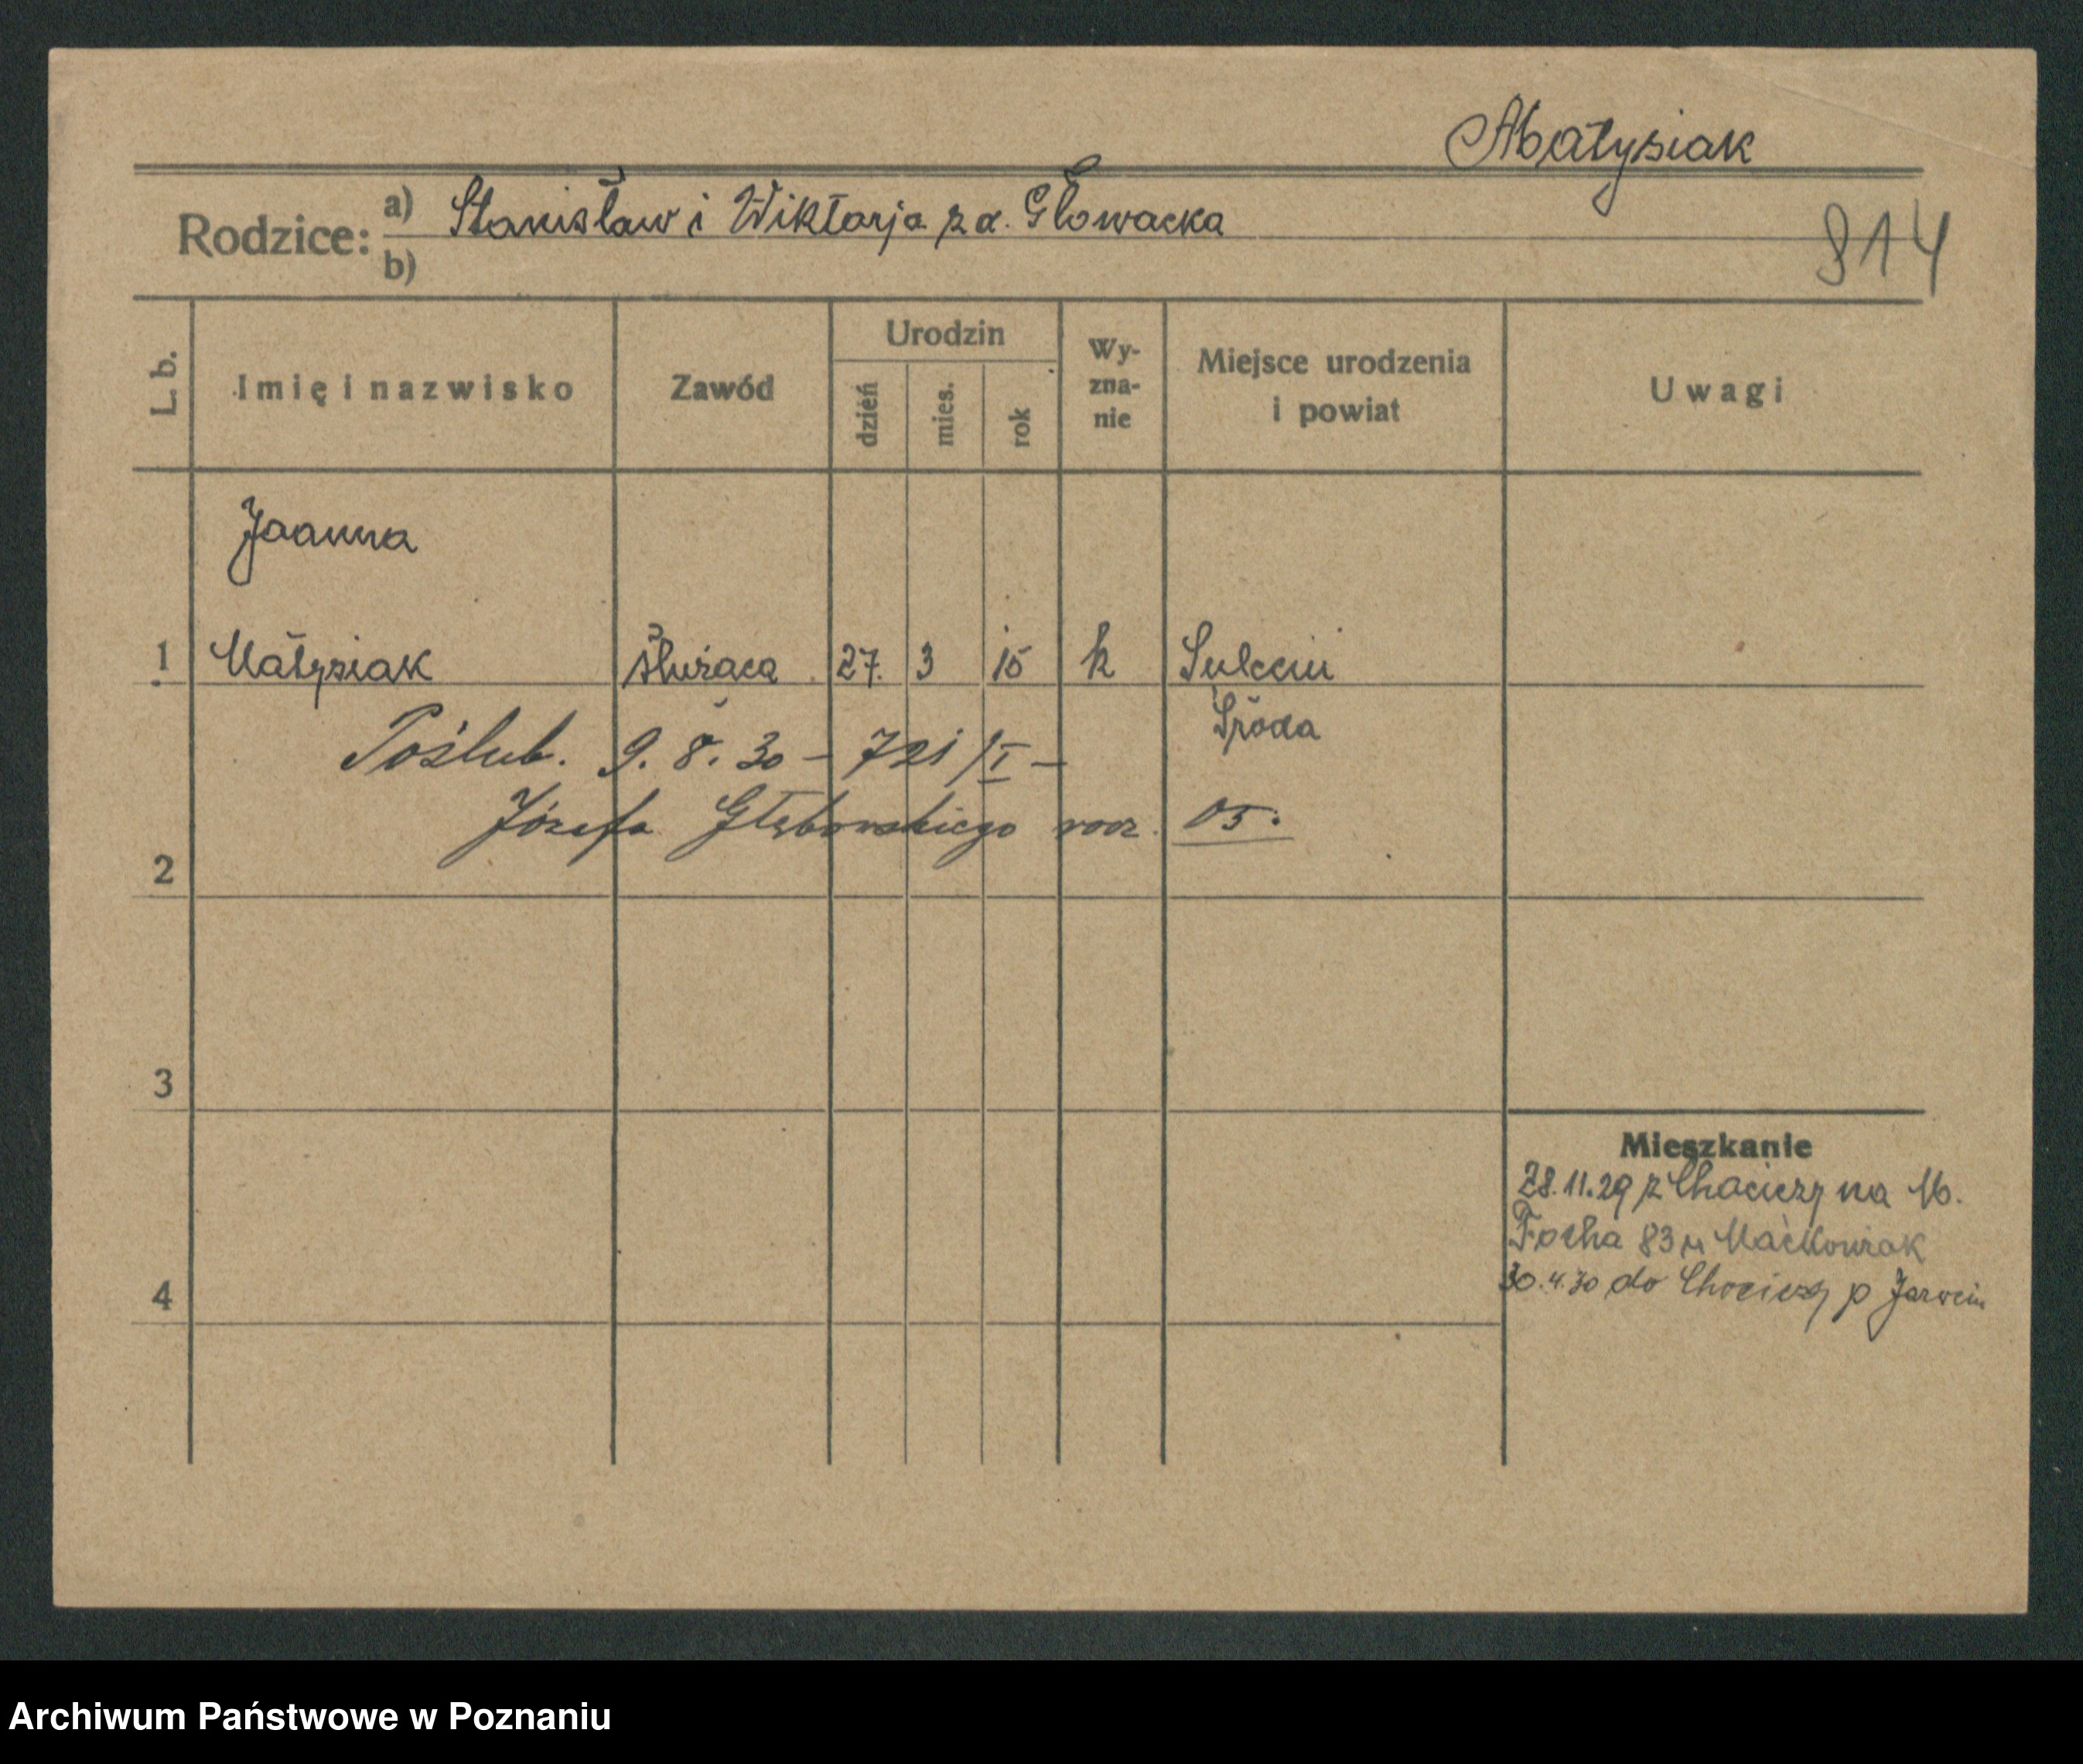 Matysiak
Rodzice: a) Stanisław i Wiktorja z d. Głowacka
b)
814
L. b.
Imię i nazwisko
Zawód
Urodzin
dzień
mies.
rok
Wy-
zna-
nie
Miejsce urodzenia
i powiat
Uwagi
Joanna
1 Matysiak służąca 27. 3 15 k Sulęcin
Środa
Poślub. 9. 8. 30 – 721/I –
Józefa Głębowskiego rocz. 05.
2
3
Mieszkanie
28.11.29 z Chociczy na M.
Focha 83 u Maćkowiak
30.4.30 do Chociczy p Jarocin
4
Archiwum Państwowe w Poznaniu